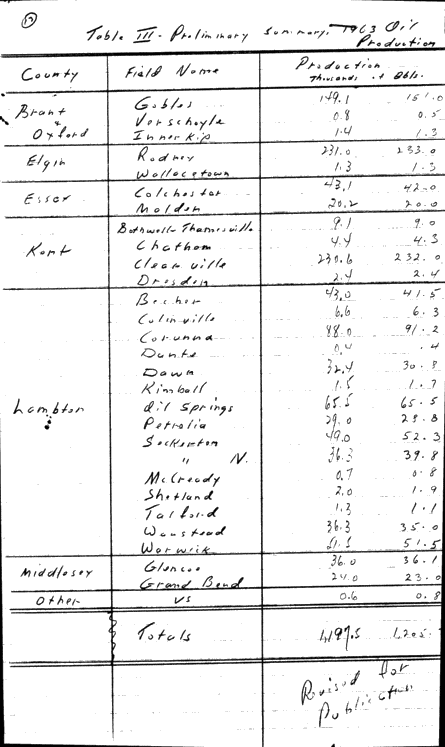 Table III - Preliminary Summary, 1963 Oil
Production
County Field Name Production
Thousands of Bbls.
Brant & Oxford Gobles 149.1 151.0
Verschoyle 0.8 0.5
Innerkip 1.4 1.3
Elgin Rodney 231.0 233.0
Wallacetown 1.3 1.3
Essex Colchester 43.1 42.0
Malden 20.2 20.0
Kent Bothwell-Thamesville 9.1 9.0
Chatham 4.4 4.3
Clearville 230.6 232.0
Dresden 2.4 2.4
Lambton Becher 43.0 41.5
Colinville 6.6 6.3
Corunna 88.0 91.2
Dante 0.4 .4
Dawn 32.4 30.8
Kimball 1.5 1.7
Oil Springs 65.5 65.5
Petrolia 29.0 28.8
Sockerton 49.0 52.3
" N. 36.3 39.8
McCready 0.7 0.8
Shetland 2.0 1.9
Talford 1.3 1.1
Wanstead 36.3 35.0
Warwick 51.5
Middlesex Glencoe 36.0 36.1
Grand Bend 24.0 23.0
Other vs 0.6 0.8
Totals 1,197.5 1,205.
Revised for
Publication